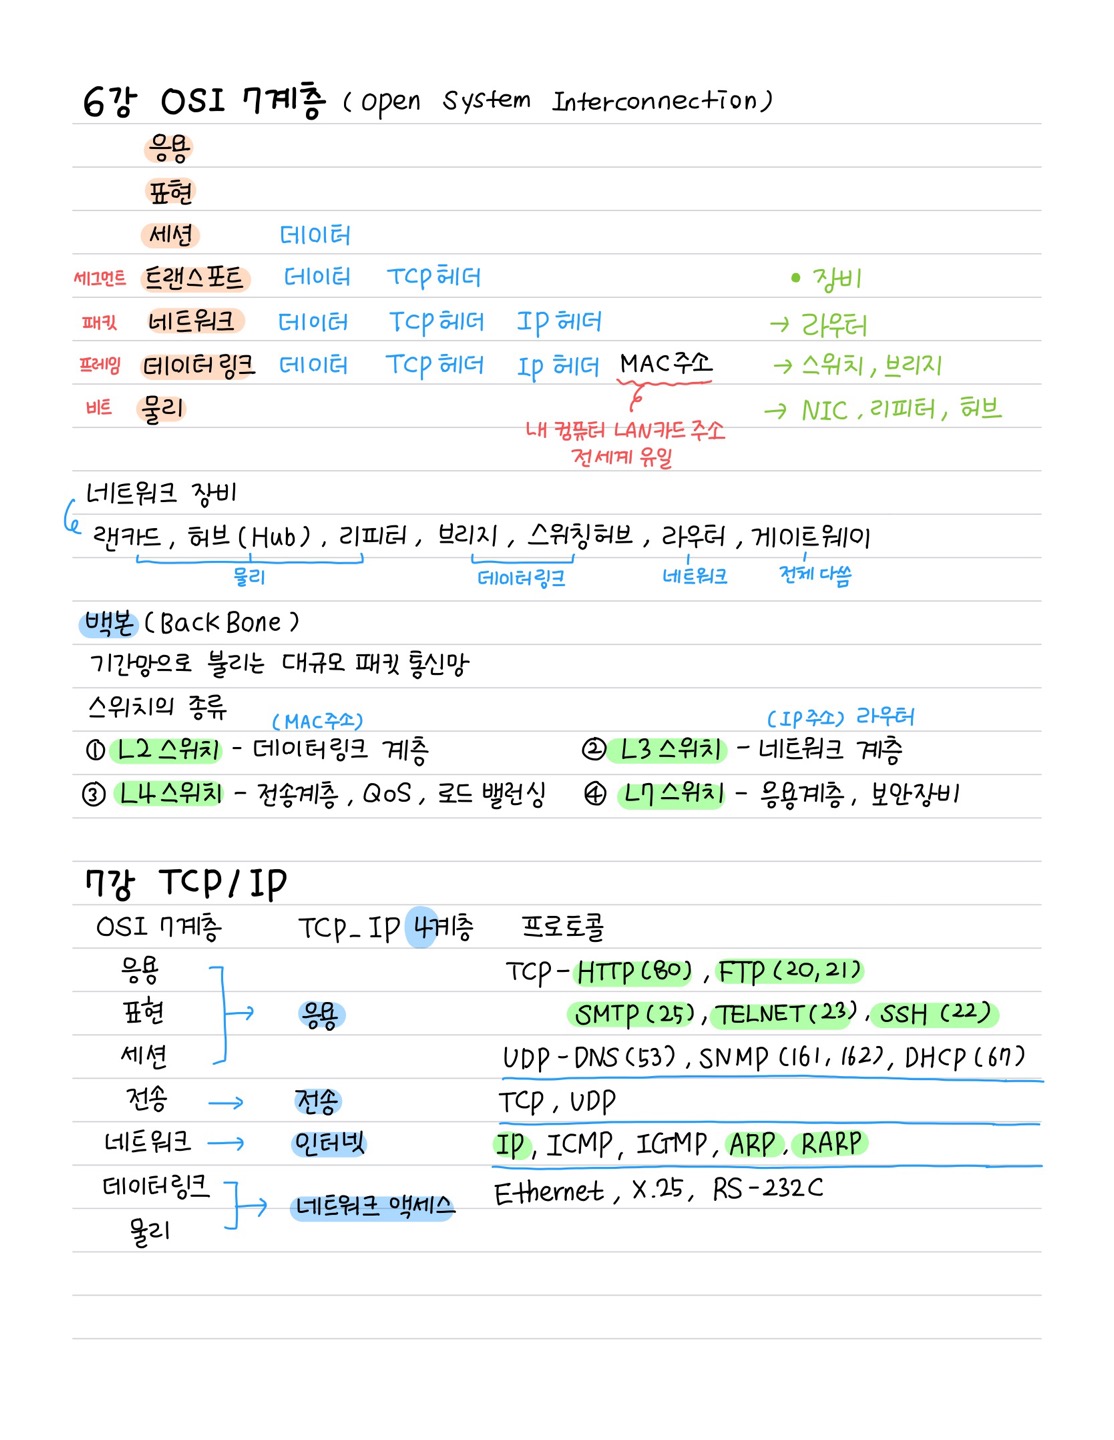 6강 OSI 7계층 (Open System Interconnection)
응용
표현
세션 데이터
세그먼트 트랜스포트 데이터 TCP헤더 • 장비
패킷 네트워크 데이터 TCP헤더 IP헤더 → 라우터
프레임 데이터링크 데이터 TCP헤더 Ip헤더 MAC주소 → 스위치, 브리지
비트 물리 → NIC, 리피터, 허브
내 컴퓨터 LAN카드 주소
전세계 유일
네트워크 장비
랜카드, 허브(Hub), 리피터, 브리지, 스위칭허브, 라우터, 게이트웨이
물리 데이터링크 네트워크 전체 다씀
백본 (BackBone)
기간망으로 불리는 대규모 패킷 통신망
스위치의 종류
(MAC주소) (IP주소) 라우터
① L2 스위치 - 데이터링크 계층 ② L3 스위치 - 네트워크 계층
③ L4 스위치 - 전송계층, QoS, 로드 밸런싱 ④ L7 스위치 - 응용계층, 보안장비
7강 TCP/IP
OSI 7계층 TCP_IP 4계층 프로토콜
응용 TCP - HTTP(80), FTP(20,21)
표현 → 응용 SMTP(25), TELNET(23), SSH(22)
세션 UDP - DNS(53), SNMP(161, 162), DHCP(67)
전송 → 전송 TCP, UDP
네트워크 → 인터넷 IP, ICMP, IGMP, ARP, RARP
데이터링크 → 네트워크 액세스 Ethernet, X.25, RS-232C
물리